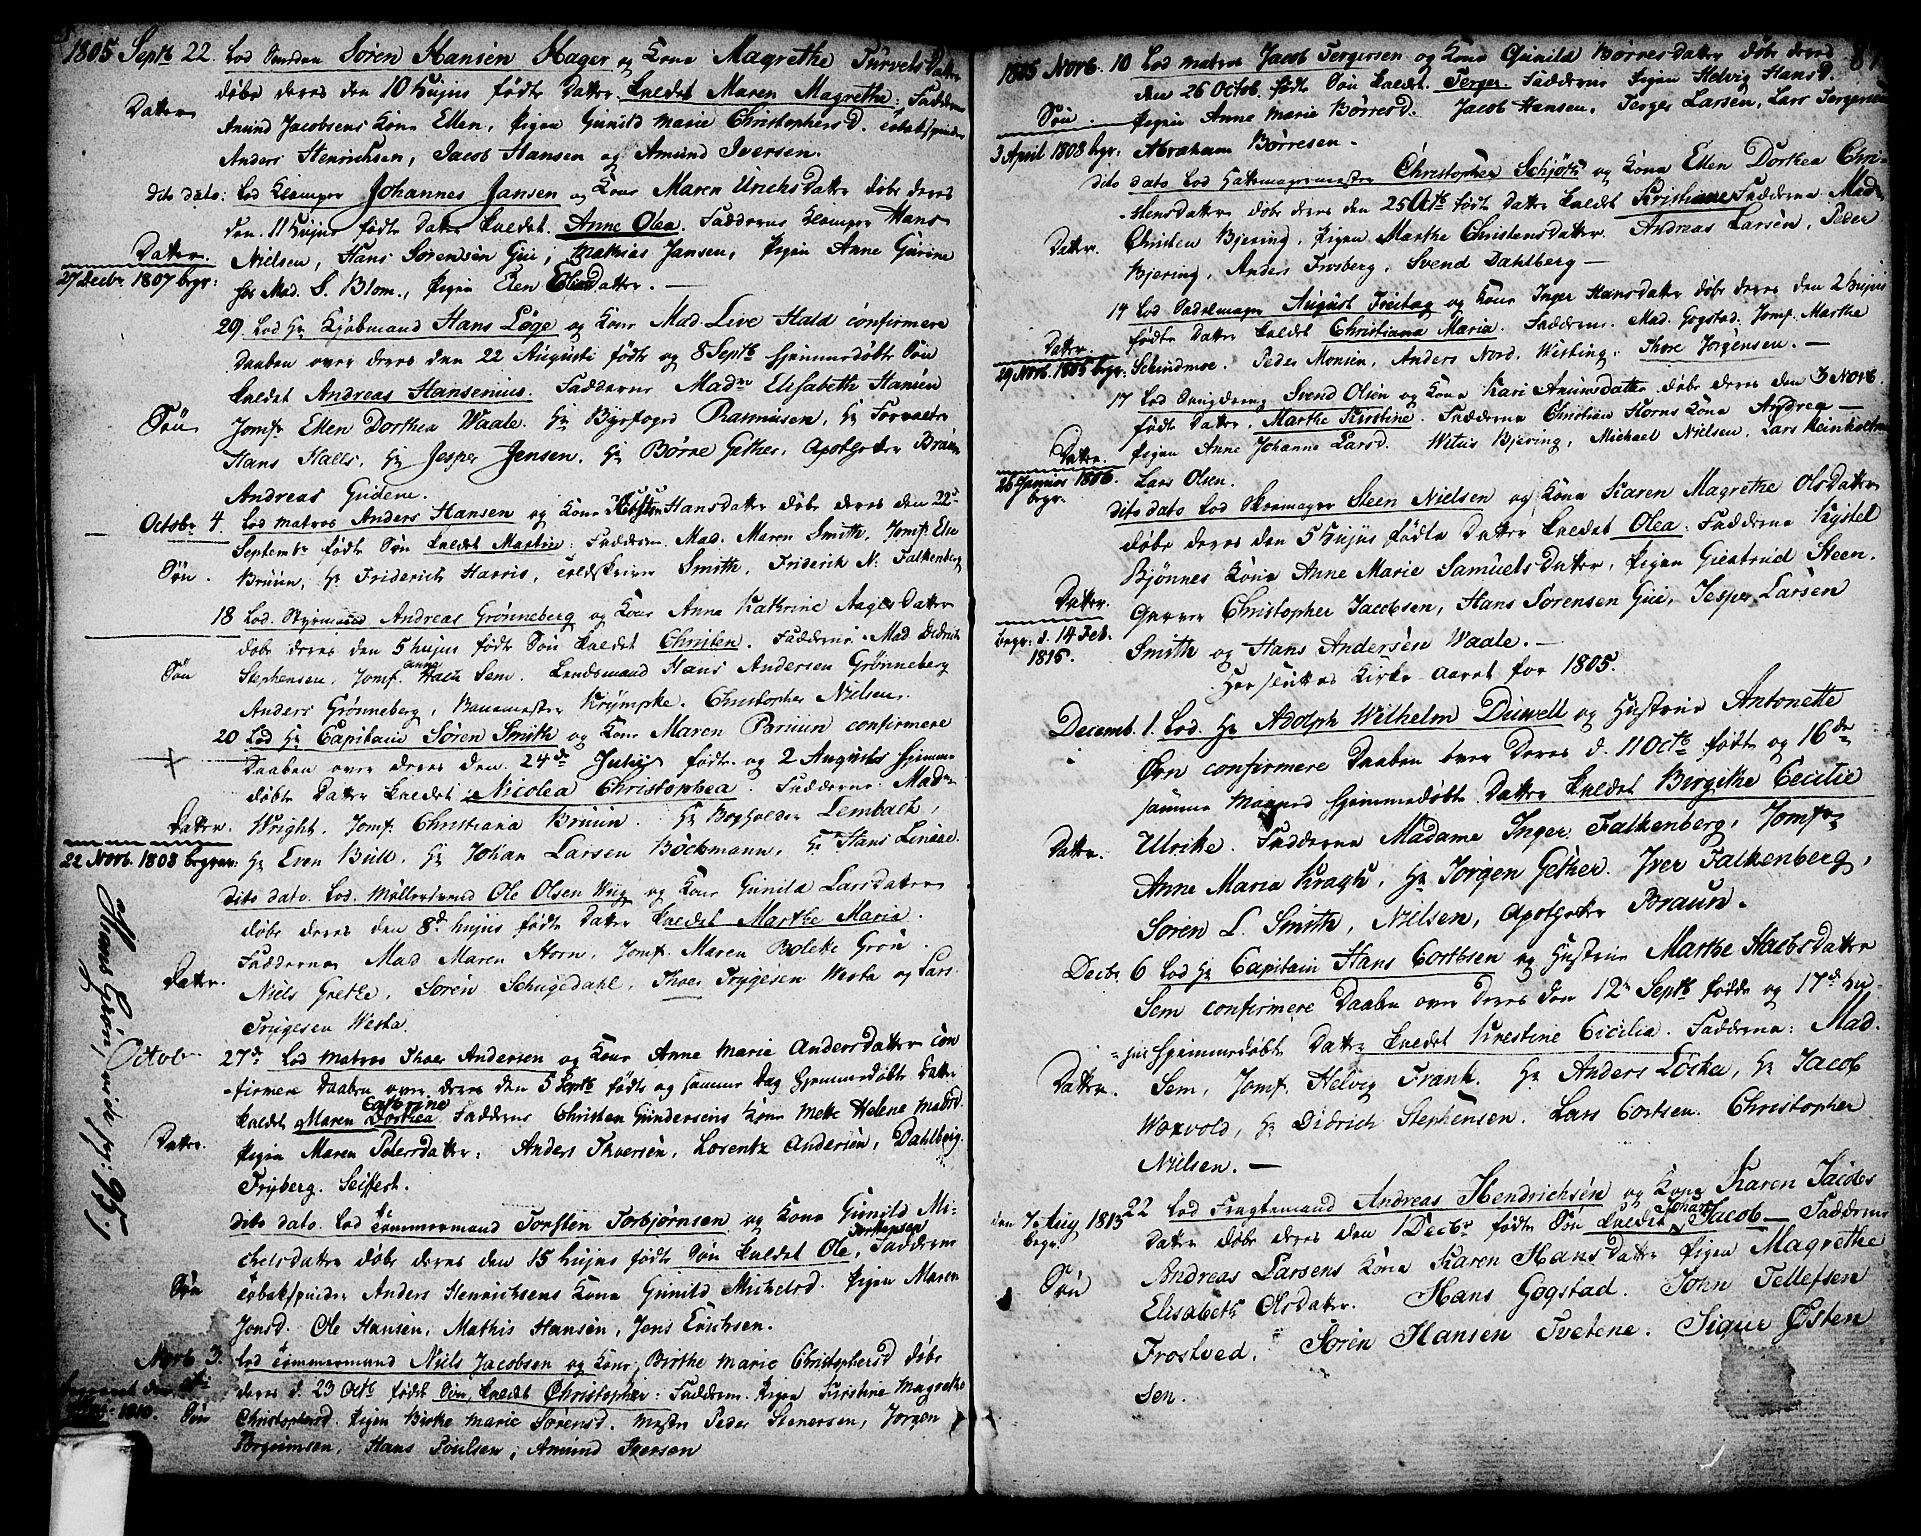 1805 Septb 22. Lod Søren Hansen Hager og Kone Magrethe Turvels Datter
døbe deres den 10 hujus fødte Datter kaldet Maren Magrethe: Faddere
Datter
Amund Jacobsens Kone Ellen, Pigen Gunild Marie Christophersd.
Anders Henrichsen, Jacob Hansen og Amund Iversen.
dito dato: Lod Johannes Jansen og Kone Maren Urichs Datter døbe deres
den 11 hujus fødte Datter kaldet Anne Olea. Fadderne Hans
Datter. Nielsen, Hans Sørensen Gui, Mathias Jansen, Pigen Anne Gurine
27 Decbr 1807 begr: hos Mad. S. Blom., Pigen Elen Datter. —
29. Lod Hr Kjøbmand Hans Løge og Kone Mad. Live Hald confirmere
Daaben over deres den 22 Augusti fødte og 8 Septb hjemmedøbte Søn
kaldet Andreas Hansenius. Fadderne Madm Elisabeth Hansen
Søn Jomf. Ellen Dorthea Waale. Hr Byfoged Rasmusen, Hr Forvalter
Hans Halls, Hr Jesper Jensen, Hr Børre Gether, Apotheker Braun
Andreas Gudem.
Octobr 4. Lod Matros Anders Hansen og Kone Hansdatter døbe deres den 22
Septembr fødte Søn kaldet Martin: Faddere. Mad. Maren Smith, Jomf. Else
Søn. Bruun, Hr Friderich Harris, Smith, Friderik N: Falkenberg
18 Lod Styrmand Andreas Grønneberg og Kone Anne Kathrine Aages Datter
døbe deres den 5 hujus fødte Søn kaldet Christen. Fadderne: Mad Didrich
Søn Stephensen, Jomf. Anna Sem. Lendsmand Hans Andersen Grønneberg
Anders Grønneberg, Krympke. Christopher Nielsen.
20 Lod Hr Capitain Søren Smith og Kone Maren Bruun confirmere
Daaben over deres den 24de Julij fødte og 2 Augusti hjemme
døbte Datter kaldet Nicolea Christophea. Fadderne: Madm
Datter. Wright. Jomf. Christiana Bruun. Hr Bogholder Lembach,
22 Novb. 1808 begraven: Hr Even Bull, Hr Johan Larsen Bøckmann, Hr Hans Linaae
dito dato. Lod. Møllersvend Ole Olsen Wiig og Kone Gunild Larsdatter
døbe deres den 8d hujus fødte Datter kaldet Marthe Maria.
Fadderne Mad Maren Horn, Jomf. Maren Bolette Grøn.
Datter. Niels Grethe, Søren Schugedahl, Thoer Trygesen Westa og Lars
Trygesen Westa.
Hans Grøn, vide pag: 95.
Octob 27d. Lod Matros Thoer Andersen og Kone Anne Marie Andersdatter con
firmere Daaben over deres den 5 Septb fødte og samme Dag hjemmedøbte Datter
Cathrine
kaldet Maren Dorthea Fadderne Christen Gundersens Kone Mette Helene Madsd.
Datter. Pigen Maren Pedersdatter. Anders Thorsen, Lorentz Andersen, Dahlberg.
Fryberg. Seifest.
dito dato. Lod Tømmermand Torsten Torbjørnsen og Kone Gunild Mi-
Torstensen
chelsdatter døbe deres den 15 hujus fødte Søn kaldet Ole, Fadderne
Søn Anders Henrichsens Kone Gunild Michelsd. Pigen Maren
Jonsd. Ole Hansen, Mathis Hansen, Jens Erichsen.
Novb 3. Lod Tømmermand Niels Jacobsen og Kone Birthe Marie Christophersd døbe
deres d. 23 Octb fødte Søn, kaldet Christopher: Faddere. Pigen Kirstine Magrethe
1810. Søn Christophersd. Pigen Birthe Marie Sørensd. Peder Stenersen, Jørgen
Børgumsen, Hans Poulsen, Amund Iversen

1805 Novb. 10 Lod Matros Jacob Tergersen og Kone Gunild Børresdatter døbe deres 87
den 26 Octob. fødte Søn kaldet Terger. Fadderne Pigen Helvig Hansd.
Søn. Pigen Anne Marie Børresd. Jacob Hansen, Terger Larsen, Lars Tergersen
3 April 1808 begr: Abraham Børresen.
dito dato Lod Hattemagermester Christopher Schjøth og Kone Ellen Dorthea Chri-
stensdatter døbe deres den 25 Octb fødte Datter kaldet Kristiane Fadderne Madm
Datter. Christen Bjering, Pigen Marthe Christensdatter. Andreas Larsen, Peder
Bjering, Anders Frosberg, Svend Dahlberg —
14 Lod Sadelmager August Freitag og Kone Inger Hansdatter døbe deres den 2 hujus
fødte Datter kaldet Christiana Maria. Fadderne. Mad. Gogstad. Jomf. Marthe
Datter.
29 Novb. 1805 begr: Schindmoe. Peder Monsen, Anders Nord, Wisting. Thore Jørgensen. —
17 Lod Svend Olsen og Kone Kari Amunsdatter døbe deres den 3 Novb.
fødte Datter, Marthe Kirstine. Fadderne Christian Horns Kone Andrea —
Datter. Pigen Anne Johanne Larsd. Witus Bjering, Michael Nielsen, Lars Reinholt
26 Januar 1806 begr. Lars Olsen.
dito dato Lod Skomager Steen Nielsen og Kone Karen Magrethe Olsdatter
døbe deres den 5 hujus fødte Datter kaldet Olea: Fadderne Kystel
Bjønnes Kone Anne Marie Samuelsdatter, Pigen Giertrud Steen.
Datter. Garver Christopher Jacobsen, Hans Sørensen Gui, Jesper Larsen
begr. d. 14 Feb. 1815. Smith og Hans Andersen Waale. —
Her sluttes Kirke Aaret for 1805.
Decemb. 1. Lod. Hr Adolph Wilhelm Duwell og Hustrue Antonette
Ørn confirmere Daaben over deres d. 11 Octb fødte og 16de
samme Maaned hjemmedøbte Datter kaldet Birgithe Cecilie
Datter. Ulrike. Fadderne Madame Inger Falkenberg, Jomfr
Anne Maria Kragh, Hr Jørgen Gether. Iver Falkenberg,
Søren L. Smith, Nielsen, Apotheker Braun.
Decbr 6 Lod Hr Capitain Hans Cortsen og Hustrue Marthe Jacobsdatter
Sem confirmere Daaben over deres den 12te Septb fødde og 17d hu-
jus hjemmedøbte Datter kaldet Krestine Cicilia. Fadderne: Mad.
Datter. Sem, Jomf. Helvig Frank. Hr Anders Løcke, Hr Jacob
Woxvold, Hr Didrich Stephensen. Lars Cortsen. Christopher
Nielsen. —
den 7 Aug 1813 begr. 22 Lod Fragtemand Andreas Hendrichsen og Kone Karen Jacobs
Johan
Datter døbe deres den 1 Decbr fødte Søn kaldet Jacob — Fadderne
Søn Andreas Larsens Kone Karen Hansdatter Pigen Magrethe
Elisabeth Olsdatter. Hans Gogstad. John Tellefsen
Frostved. Søren Hansen Tvetene. Sigur Østen
sen.